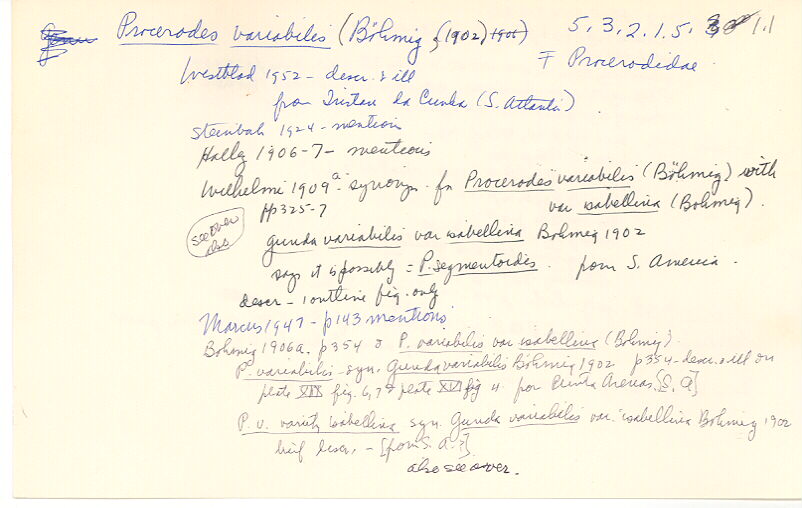 Procerodes variabilis (Böhmig, (1902) 5.3.2.1.5. 1.1
F Procerodidae
Westblad 1952 - descr. & ill
from Tristan da Cunha (S. Atlantic)
Steinbak 1924 - mention
Hallez 1906-7 - mentions
Wilhelmi 1909a - synonym. for Procerodes variabilis (Böhmig) with
pp 325-7 var isabellina (Bohmig).
see over also
gunda variabilis var isabellina Bohmig 1902
says it is possibly = P. segmentoides. from S. America.
descr - 1 outline fig. only
Marcus 1947 - p143 mentions
Bohmig 1906a. p354 P. variabilis var isabellina (Bohmig).
P. variabilis - syn. Gunda variabilis Böhmig 1902 p354 - descr. & ill on
plate XII fig. 6, 7 plate XVI fig 4 for Punta Arenas. [S. A]
P. v. variety isabellina syn. Gunda variabilis var. isabellina Bohmig 1902
brief descr. - [from S. A.?].
also see over.